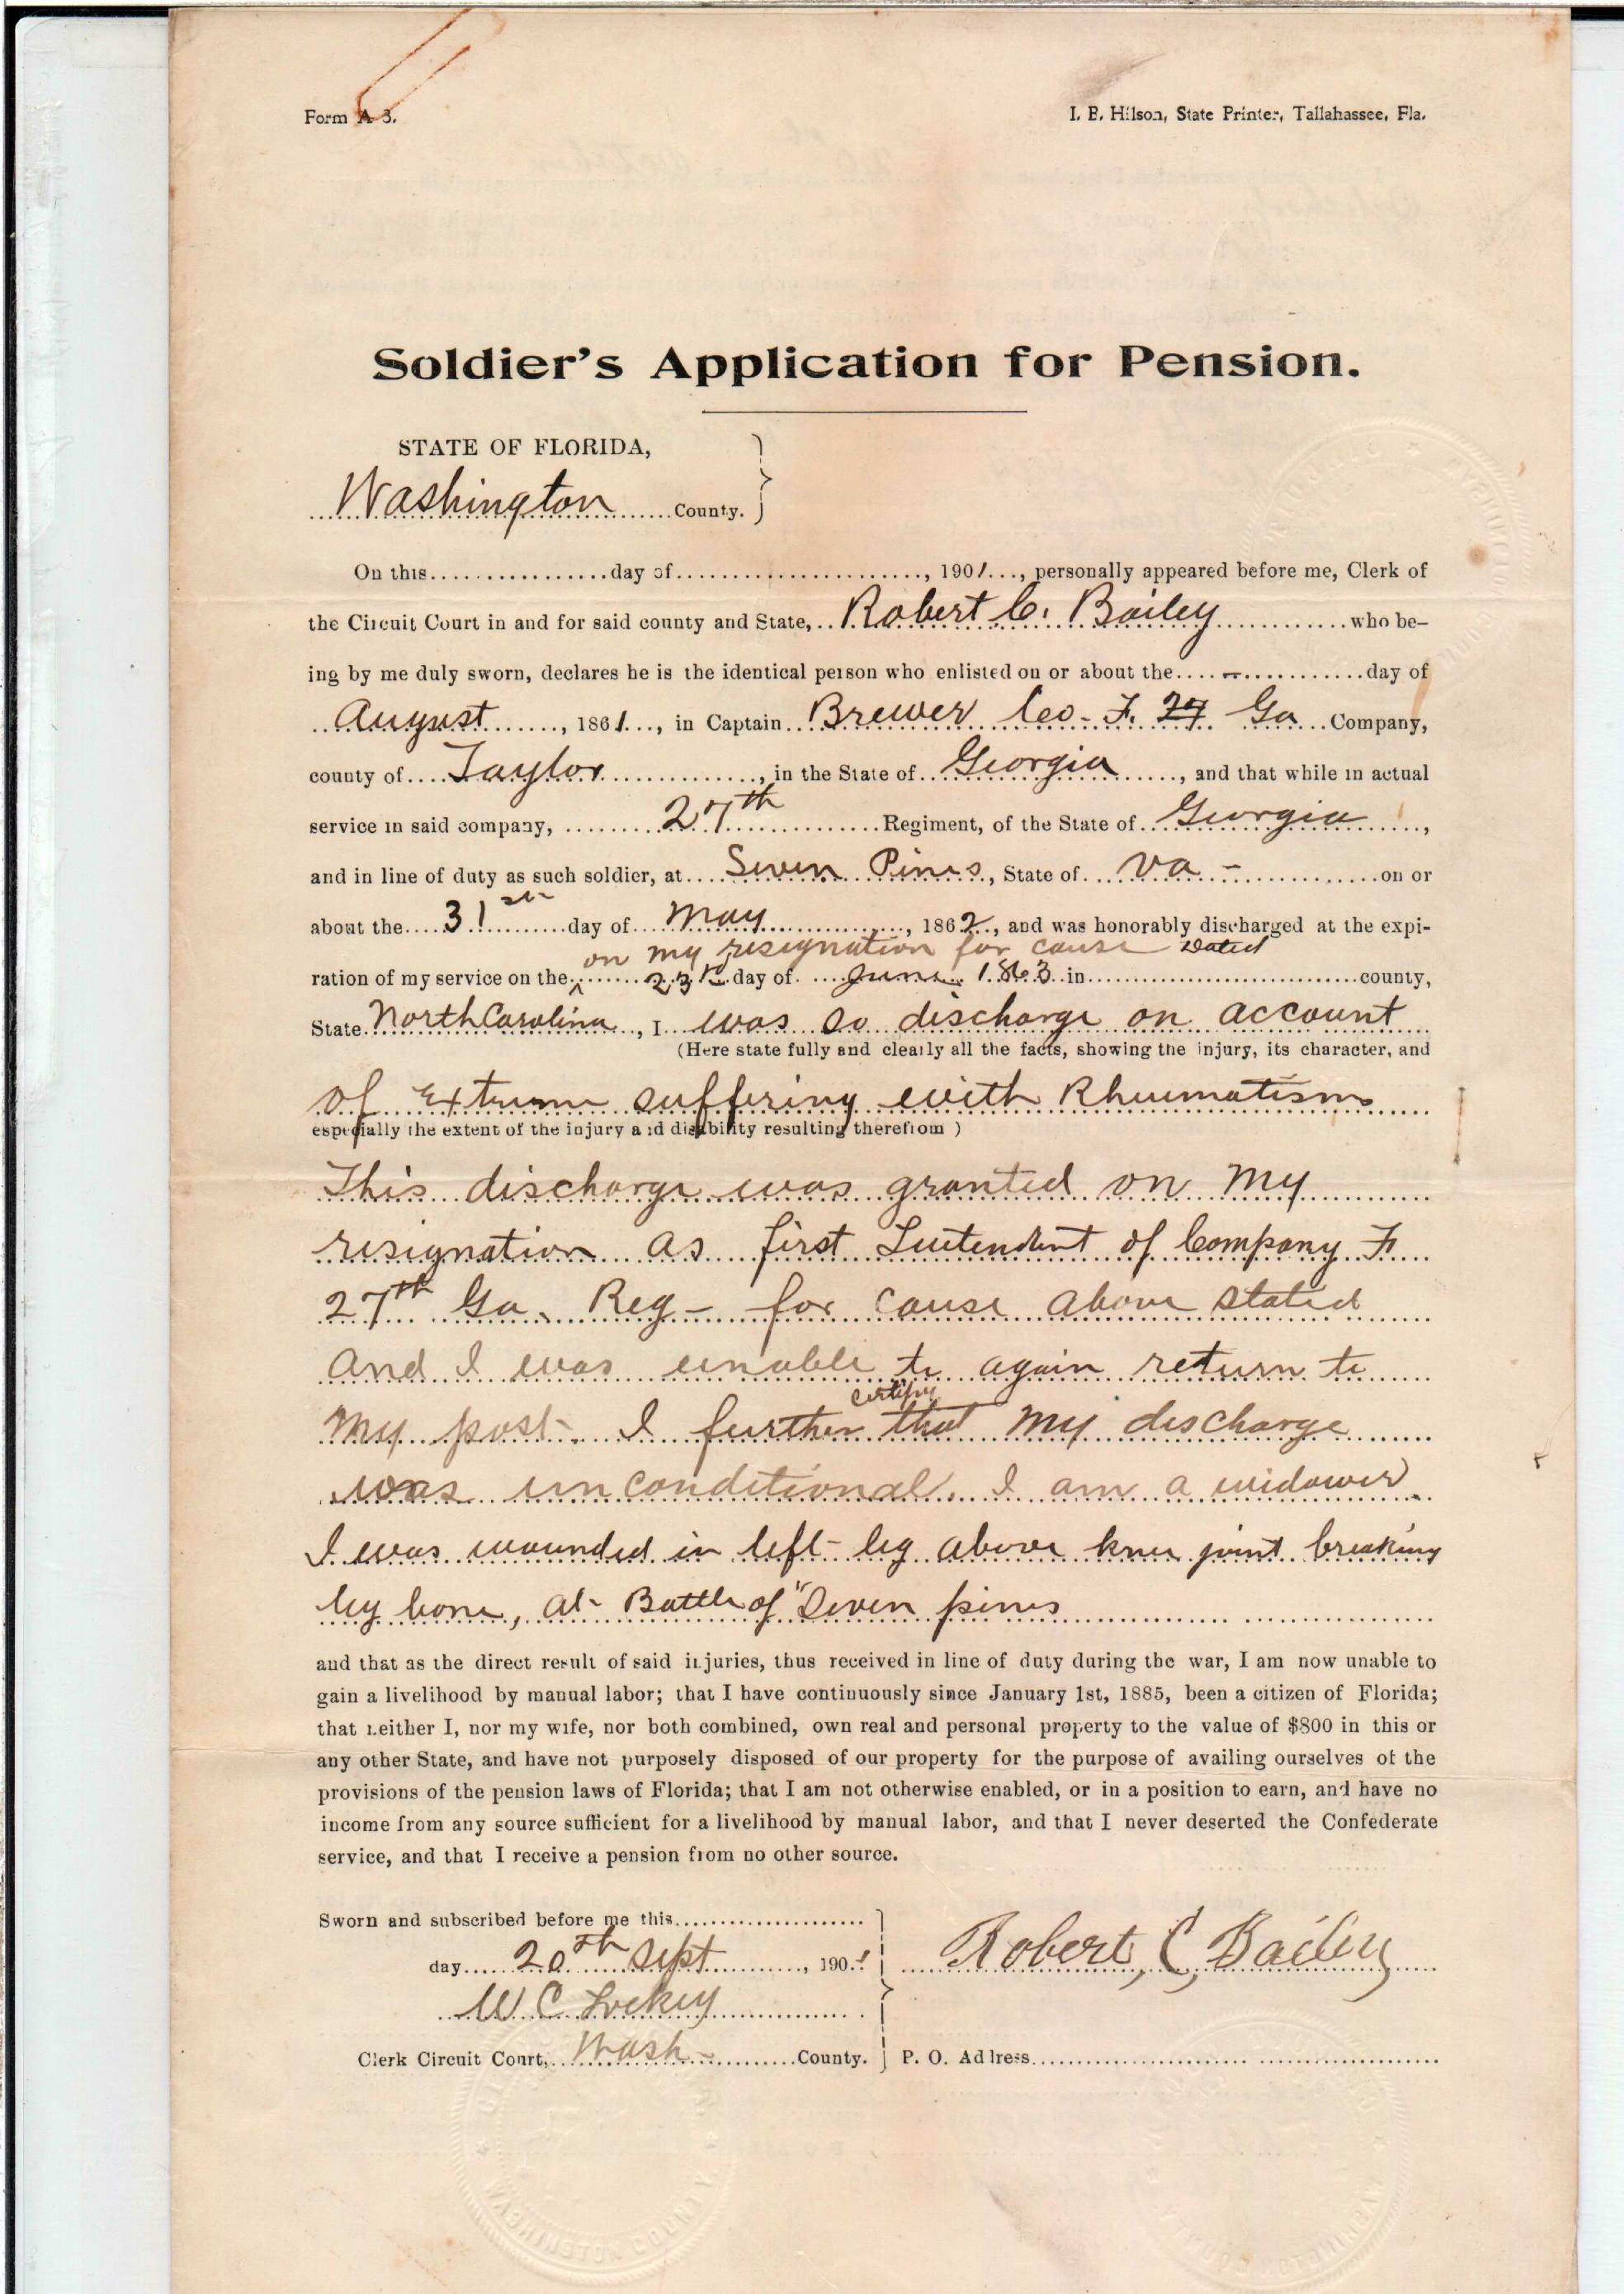 Form A 3.
I. B. Hilson, State Printer, Tallahassee, Fla.
Soldier's Application for Pension.
STATE OF FLORIDA,
Washington County.
On this ... day of ..., 1901, personally appeared before me, Clerk of
the Circuit Court in and for said county and State, Robert C. Bailey who be-
ing by me duly sworn, declares he is the identical person who enlisted on or about the - day of
August, 1861, in Captain Brewer Co - F. 27 Ga Company,
county of Taylor, in the State of Georgia, and that while in actual
service in said company, 27th Regiment, of the State of Georgia,
and in line of duty as such soldier, at Seven Pines, State of Va - on or
about the 31st day of May, 1862, and was honorably discharged at the expi-
on my resignation for cause Dated
ration of my service on the 23rd day of June 1863 in ... county,
State North Carolina, I was so discharge on account
(Here state fully and clearly all the facts, showing the injury, its character, and
of Extreme suffering with Rheumatism
especially the extent of the injury and disability resulting therefrom)
This discharge was granted on my
resignation as first Luitendent of Company F
27th Ga. Reg - for cause above stated
and I was unable to again return to
certify
my post. I further that my discharge
was unconditional. I am a widower
I was wounded in left leg above knee joint breaking
leg bone, at Battle of "Seven pines
and that as the direct result of said injuries, thus received in line of duty during the war, I am now unable to
gain a livelihood by manual labor; that I have continuously since January 1st, 1885, been a citizen of Florida;
that neither I, nor my wife, nor both combined, own real and personal property to the value of $800 in this or
any other State, and have not purposely disposed of our property for the purpose of availing ourselves of the
provisions of the pension laws of Florida; that I am not otherwise enabled, or in a position to earn, and have no
income from any source sufficient for a livelihood by manual labor, and that I never deserted the Confederate
service, and that I receive a pension from no other source.
Sworn and subscribed before me this
day 20th Sept, 1901
Robert C Bailey
W C Lockey
Clerk Circuit Court, Wash - County.
P. O. Address
WASHINGTON COUNTY